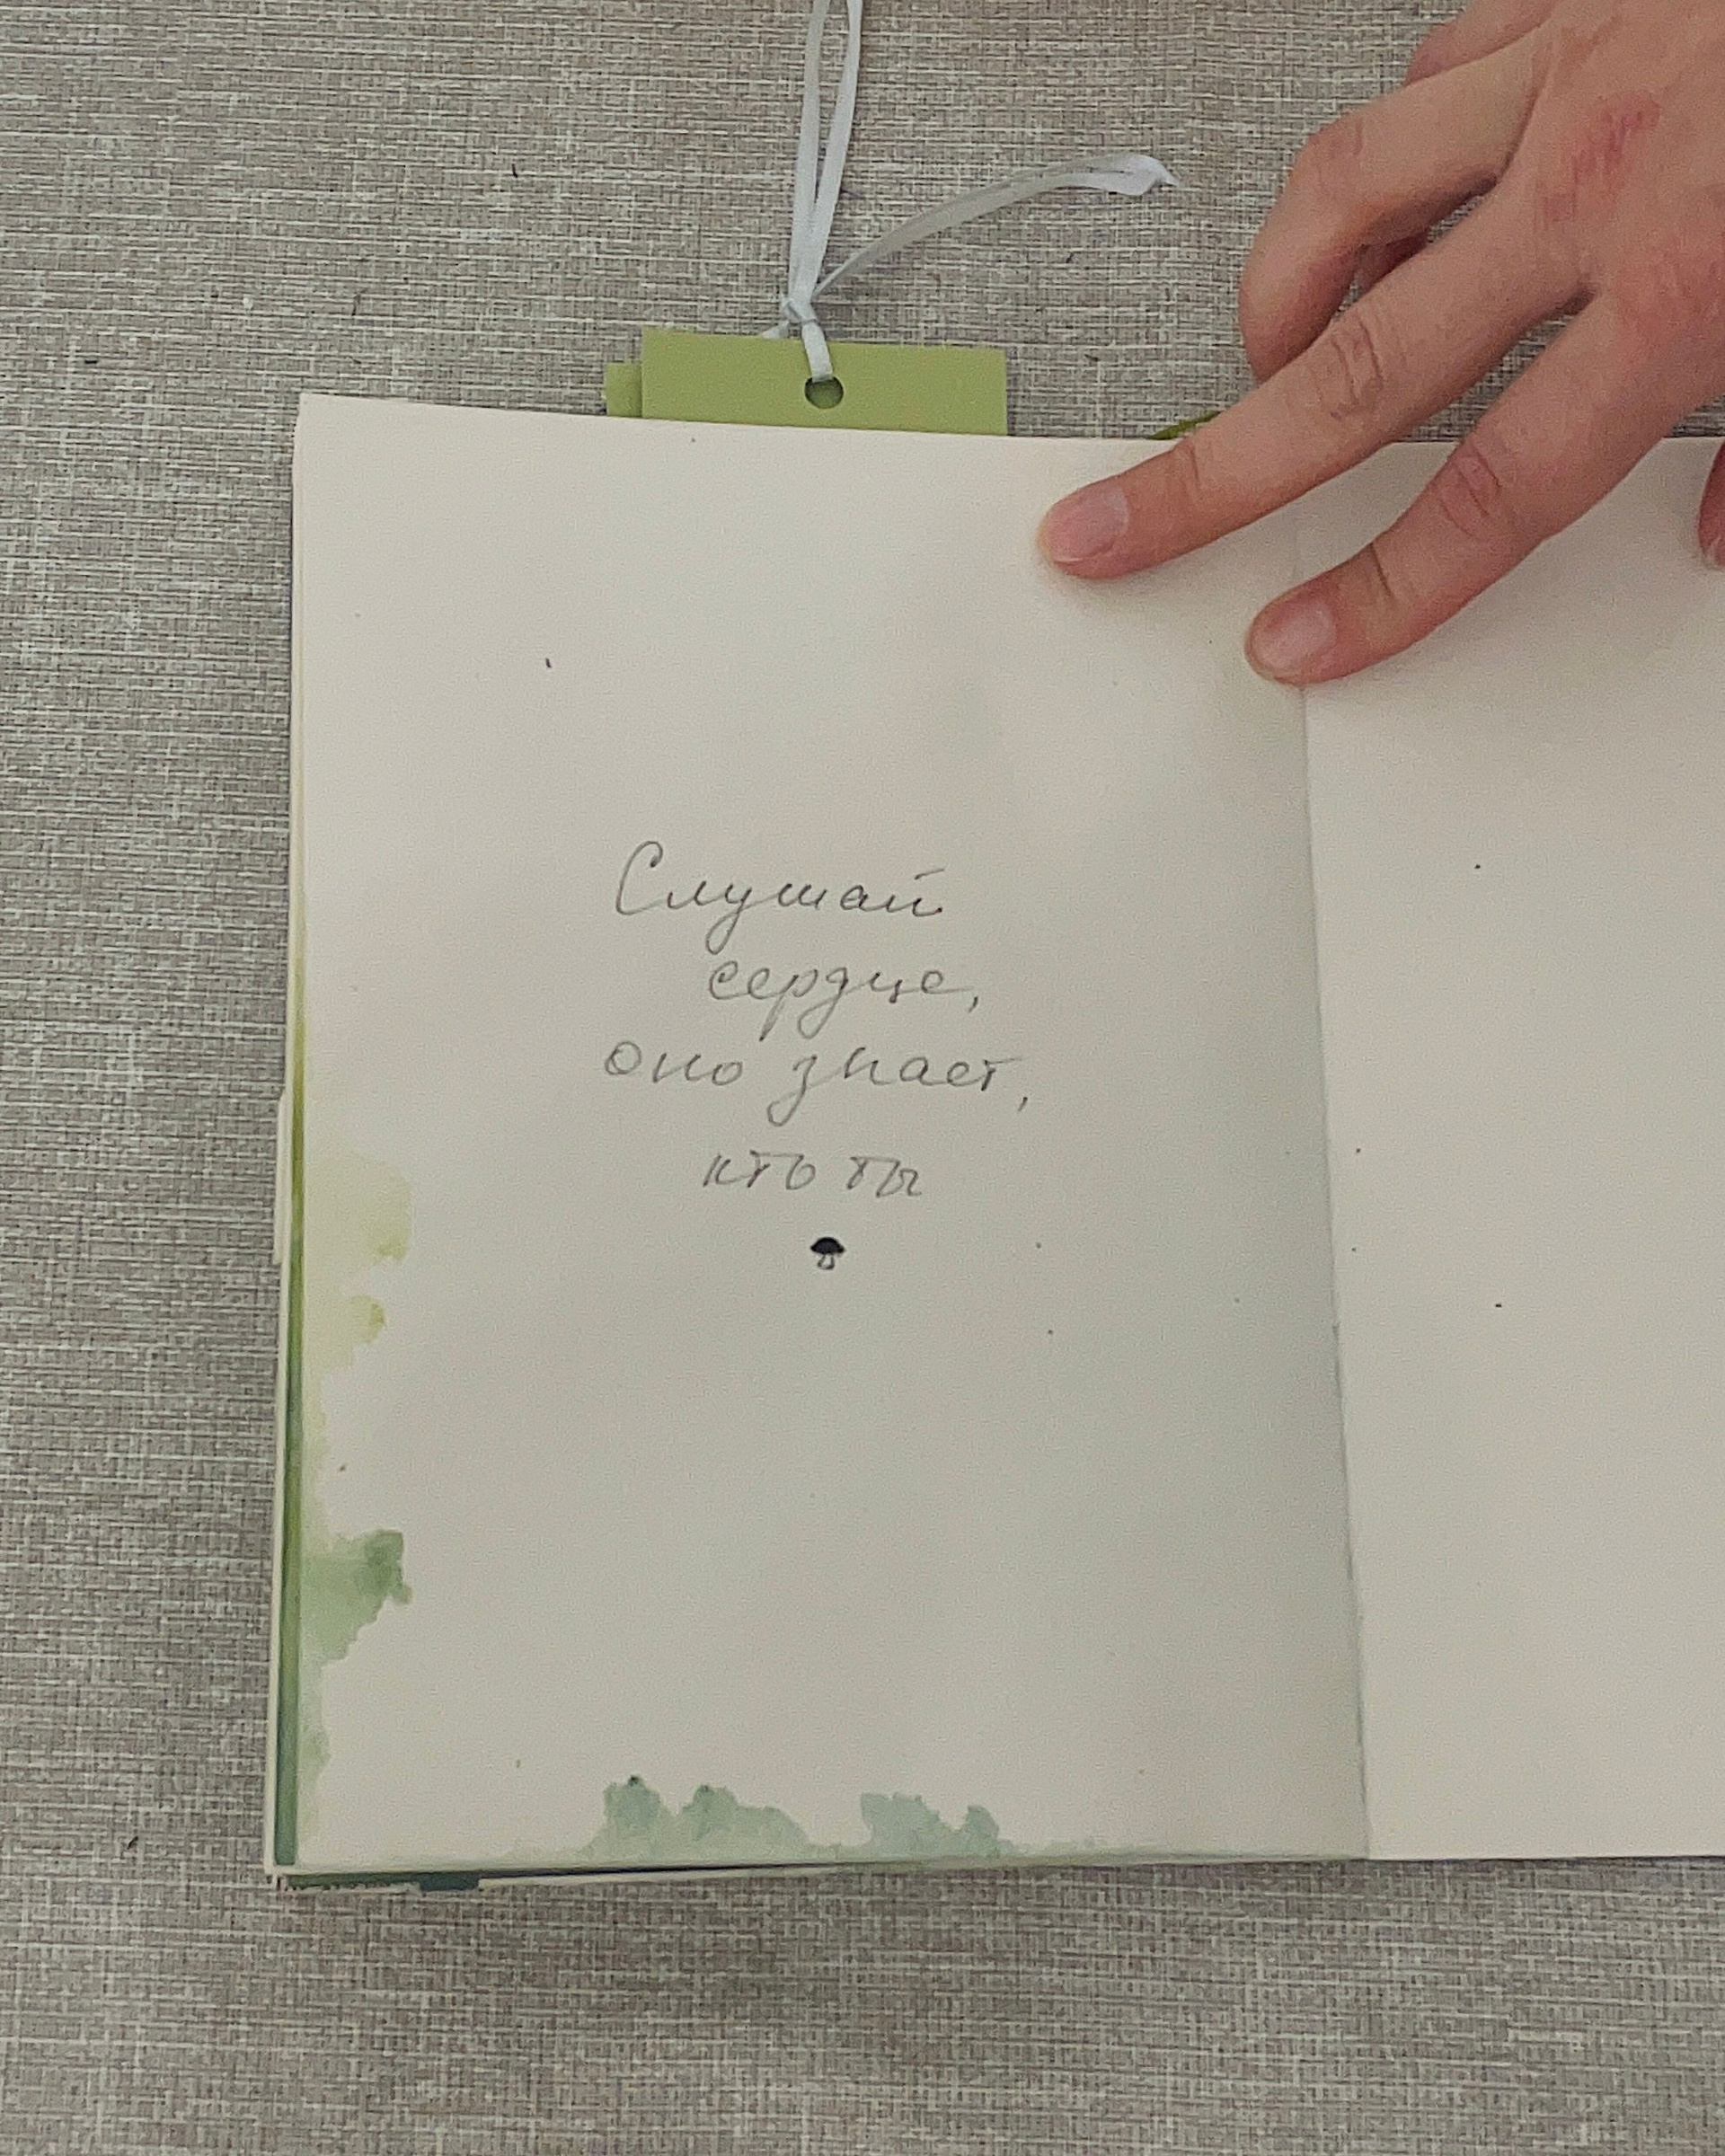 Слушай
сердце,
оно знает,
кто ты